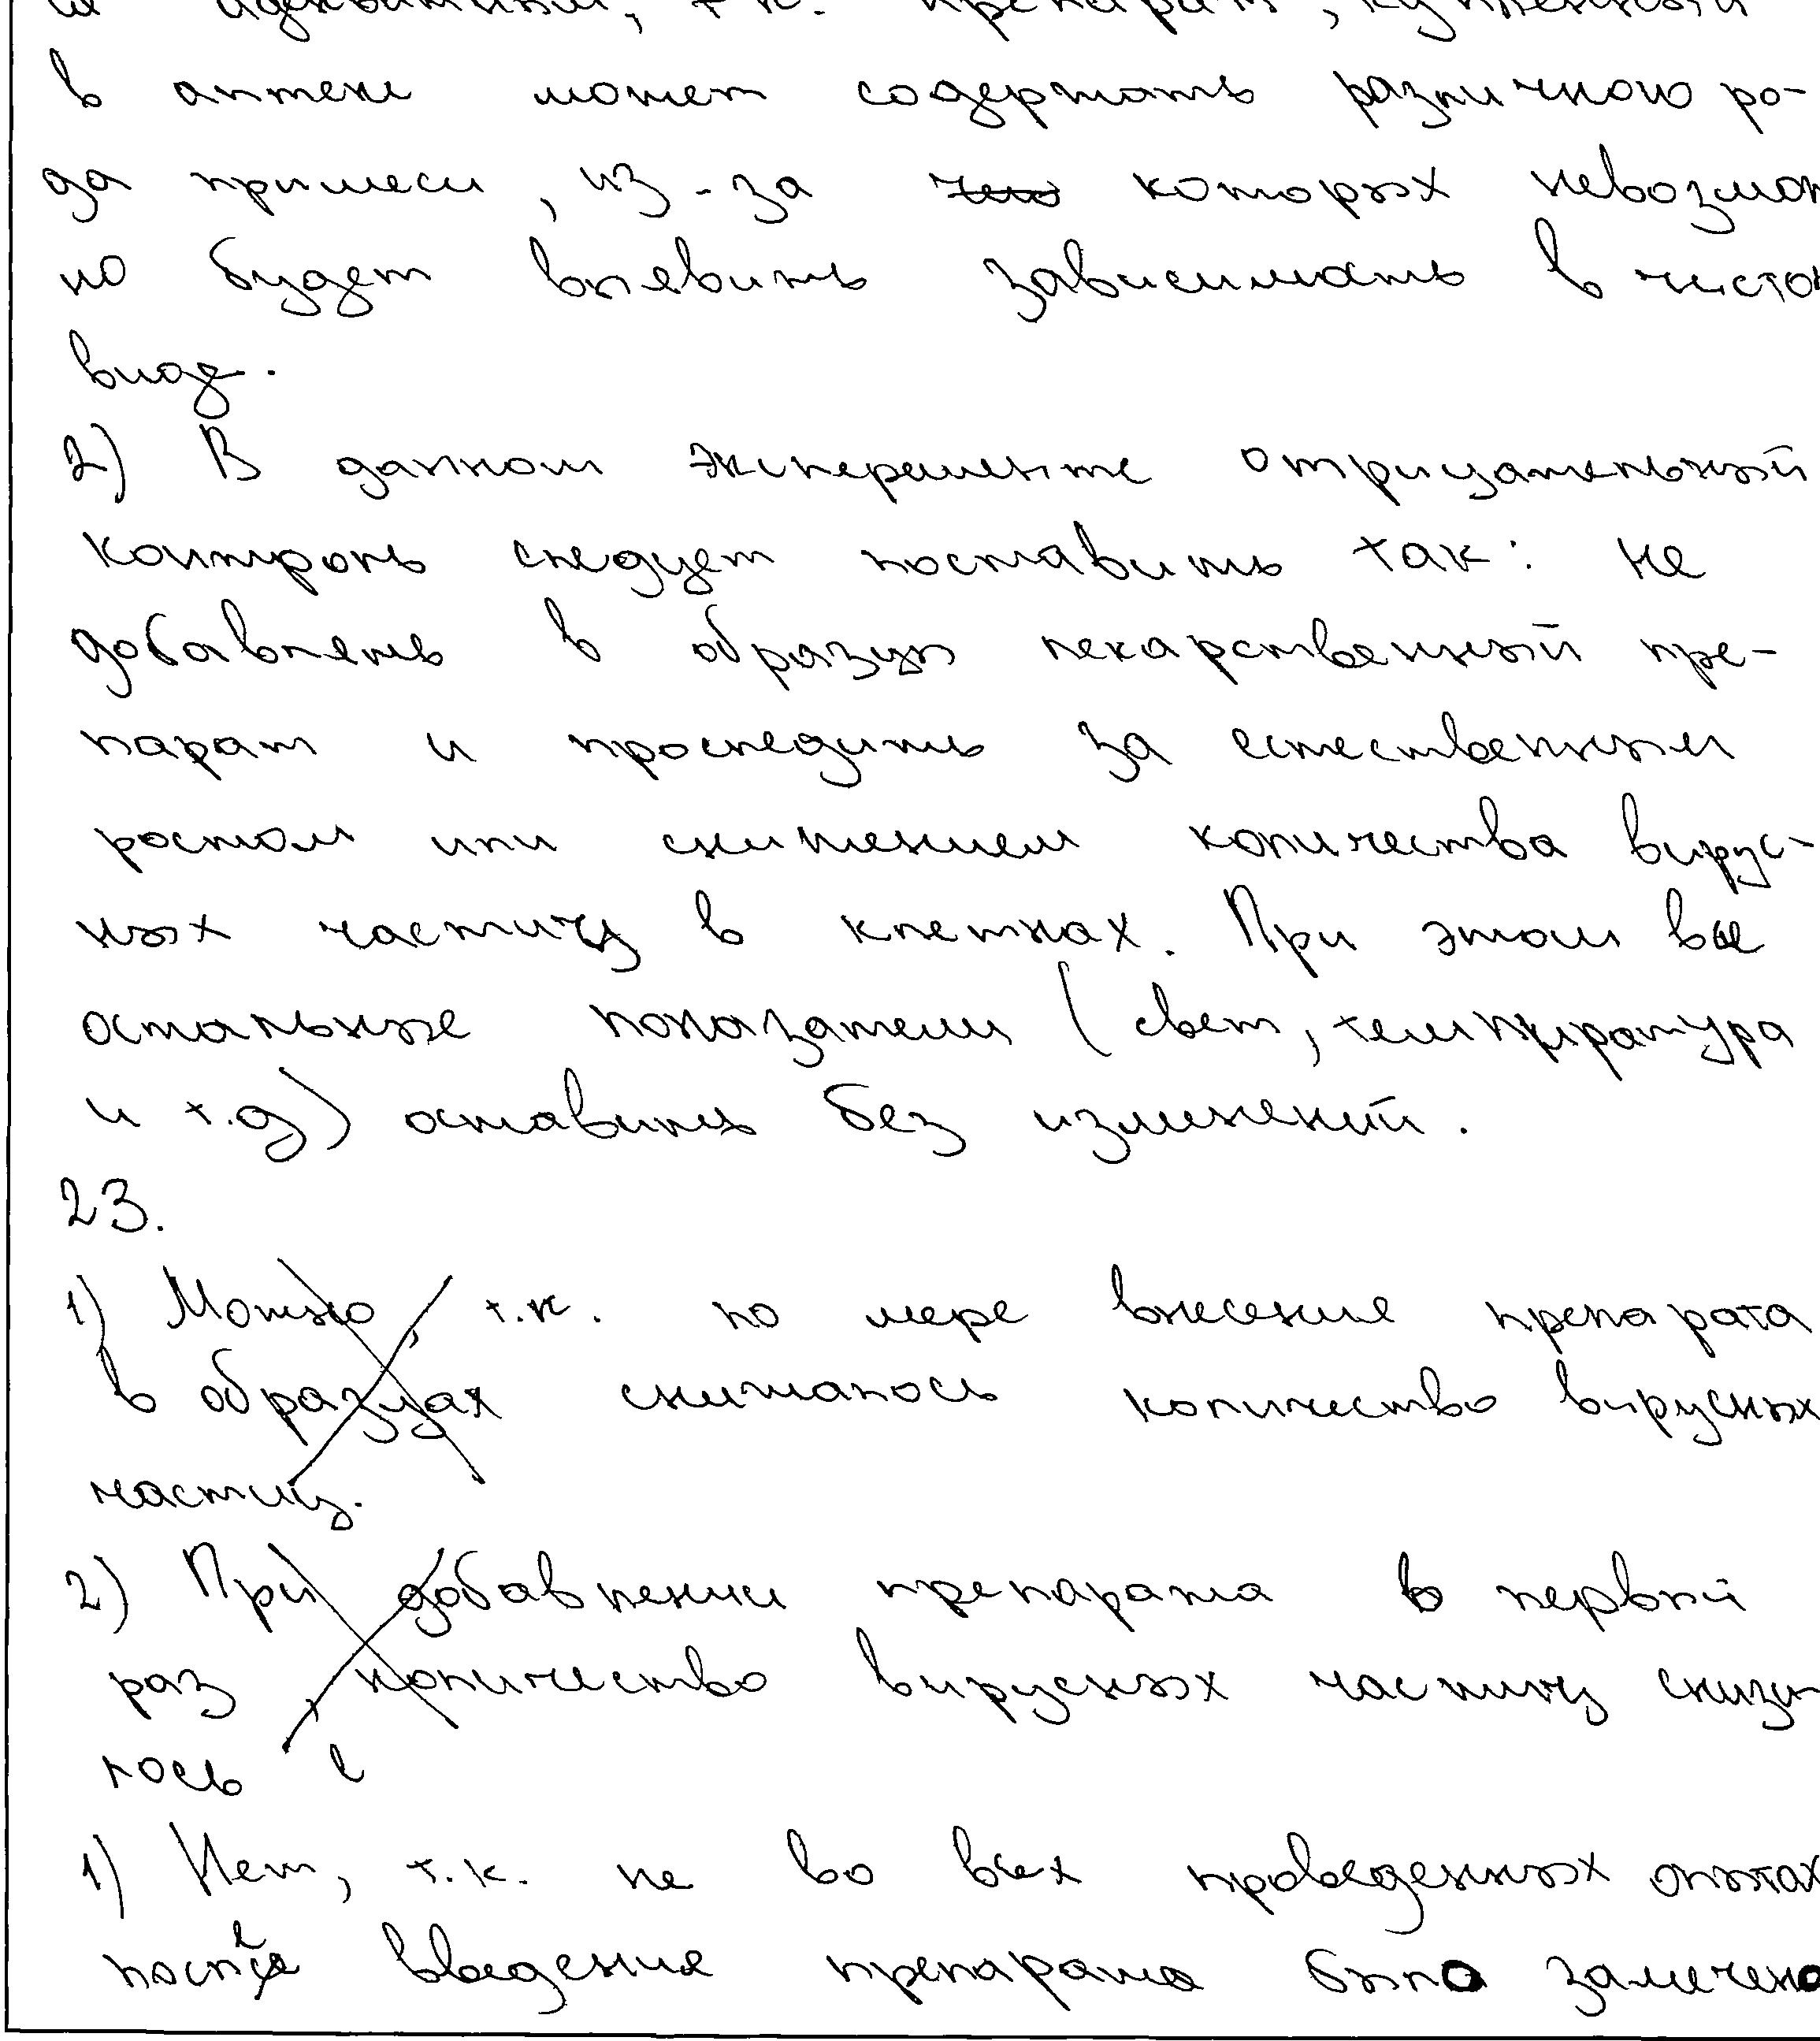 адекватным, т.к. препарат, купленный
в аптеке может содержать различного ро-
да примеси, из-за чего которых невозмож
но будет вывевить зависимость в чистом
виде.
2) В данном эксперементе отрицательный
контроль следует поставить так: не
добавлять в образцы лекарственный пре-
парат и проследить за естественным
ростом или снижением количества вирус-
ных частиц в клетках. При этом все
остальные показатели (свет, температура
и т.д) оставить без изменений.
23.
1) Можно, т.к. по мере внесение препарата
в образцах снижалось количество вирусных
частиц.
2) При добавлении препарата в первый
раз, количество вирусных частиц снизи
лось с
1) Нет, т.к. не во всех проведенных опытах
после введение препарата было замечено